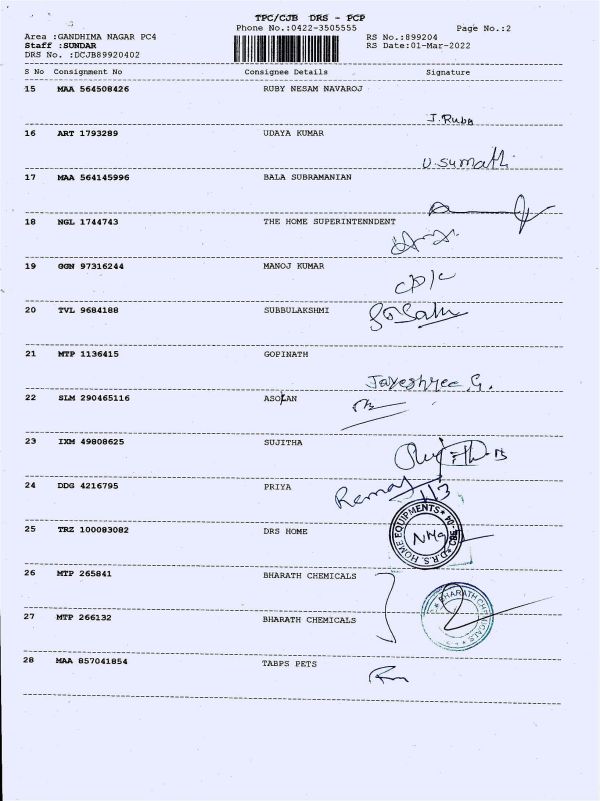 TPC/CJB DRS - PCP
Phone No.:0422-3505555 Page No.:2
Area :GANDHIMA NAGAR PC4 RS No.:899204
Staff :SUNDAR RS Date:01-Mar-2022
DRS No. :DCJB89920402
S No Consignment No Consignee Details Signature
15 MAA 564508426 RUBY NESAM NAVAROJ
J. Ruba
16 ART 1793289 UDAYA KUMAR
U. Sumathi
17 MAA 564145996 BALA SUBRAMANIAN
18 NGL 1744743 THE HOME SUPERINTENNDENT
19 GGN 97316244 MANOJ KUMAR
20 TVL 9684188 SUBBULAKSHMI
21 MTP 1136415 GOPINATH
Jayeshree G.
22 SLM 290465116 ASOLAN
23 IXM 49808625 SUJITHA
24 DDG 4216795 PRIYA
D.R.S. HOME EQUIPMENTS
25 TRZ 100083082 DRS HOME
26 MTP 265841 BHARATH CHEMICALS
BHARATH CHEMICALS
27 MTP 266132 BHARATH CHEMICALS
28 MAA 857041854 TABPS PETS